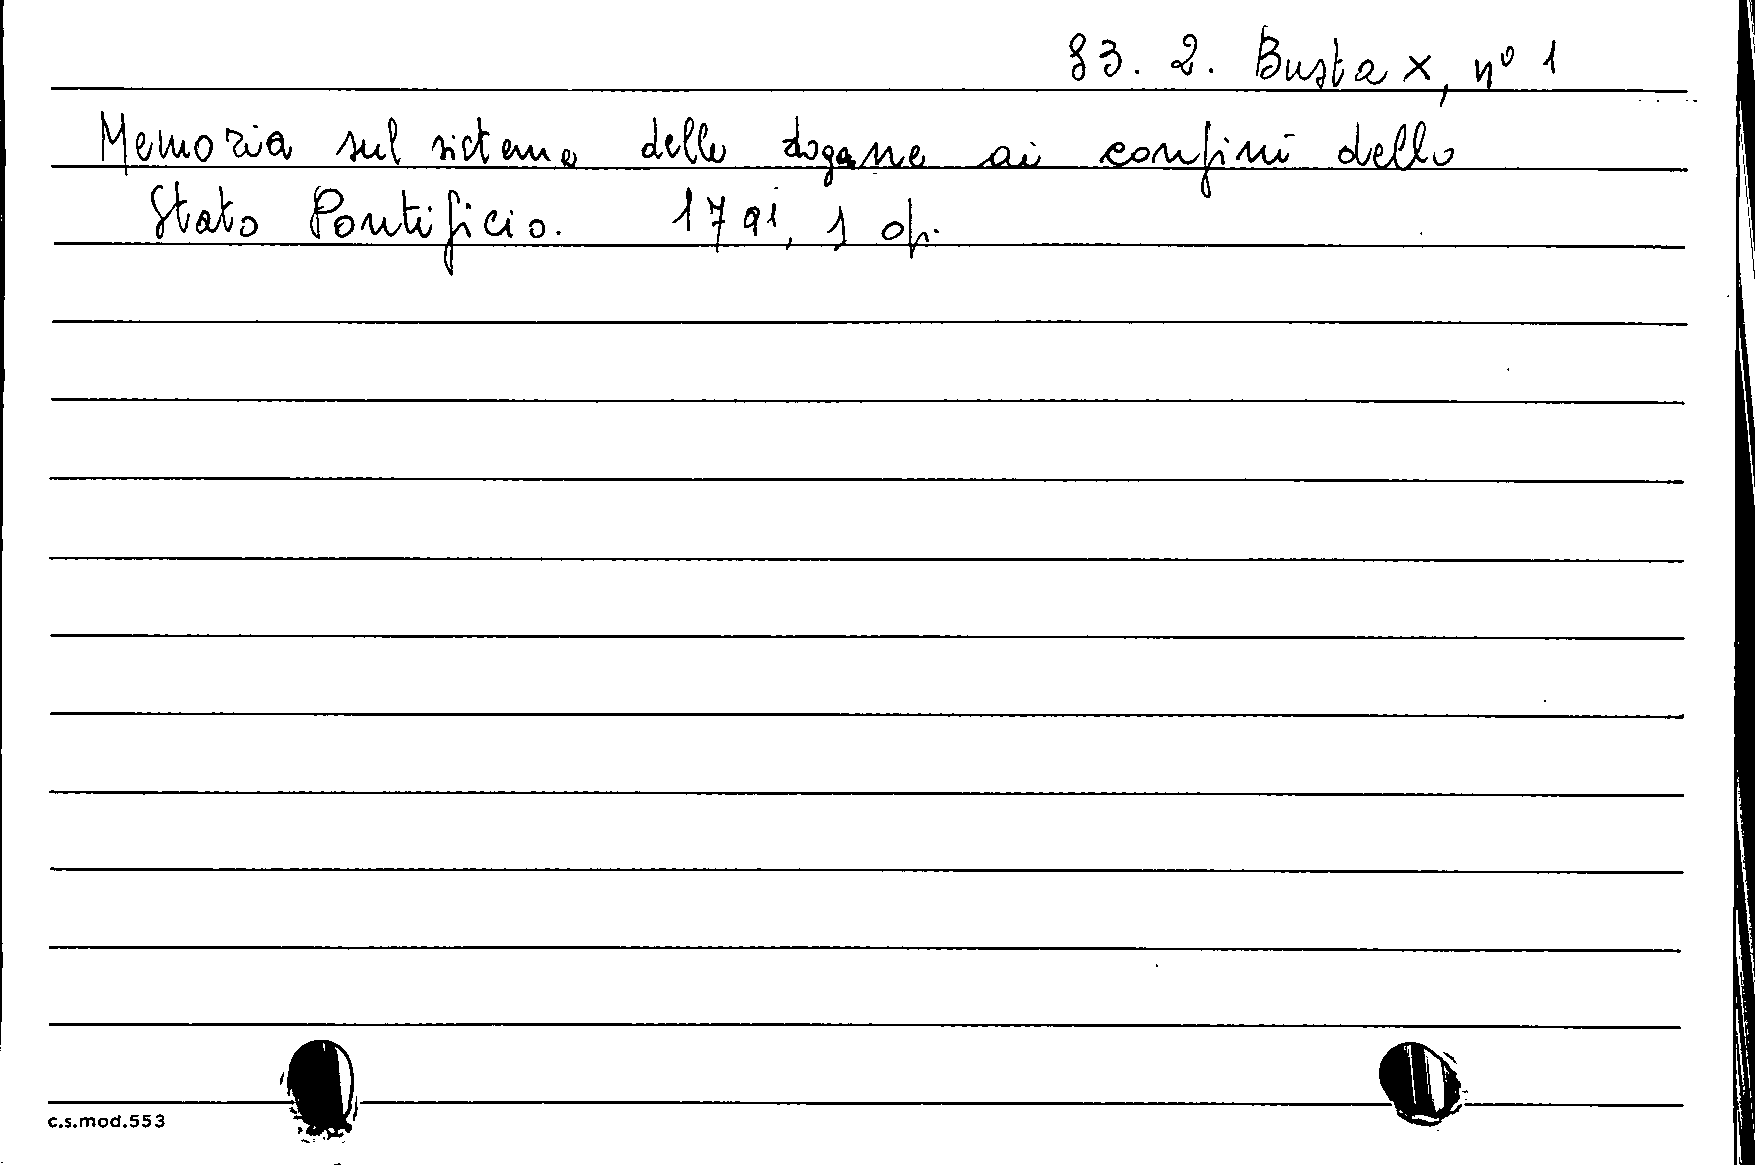 83. 2. Busta X, nº 1
Memoria sul sistema delle dogane ai confini dello
Stato Pontificio. 1791, 1 op.
c.s.mod.553